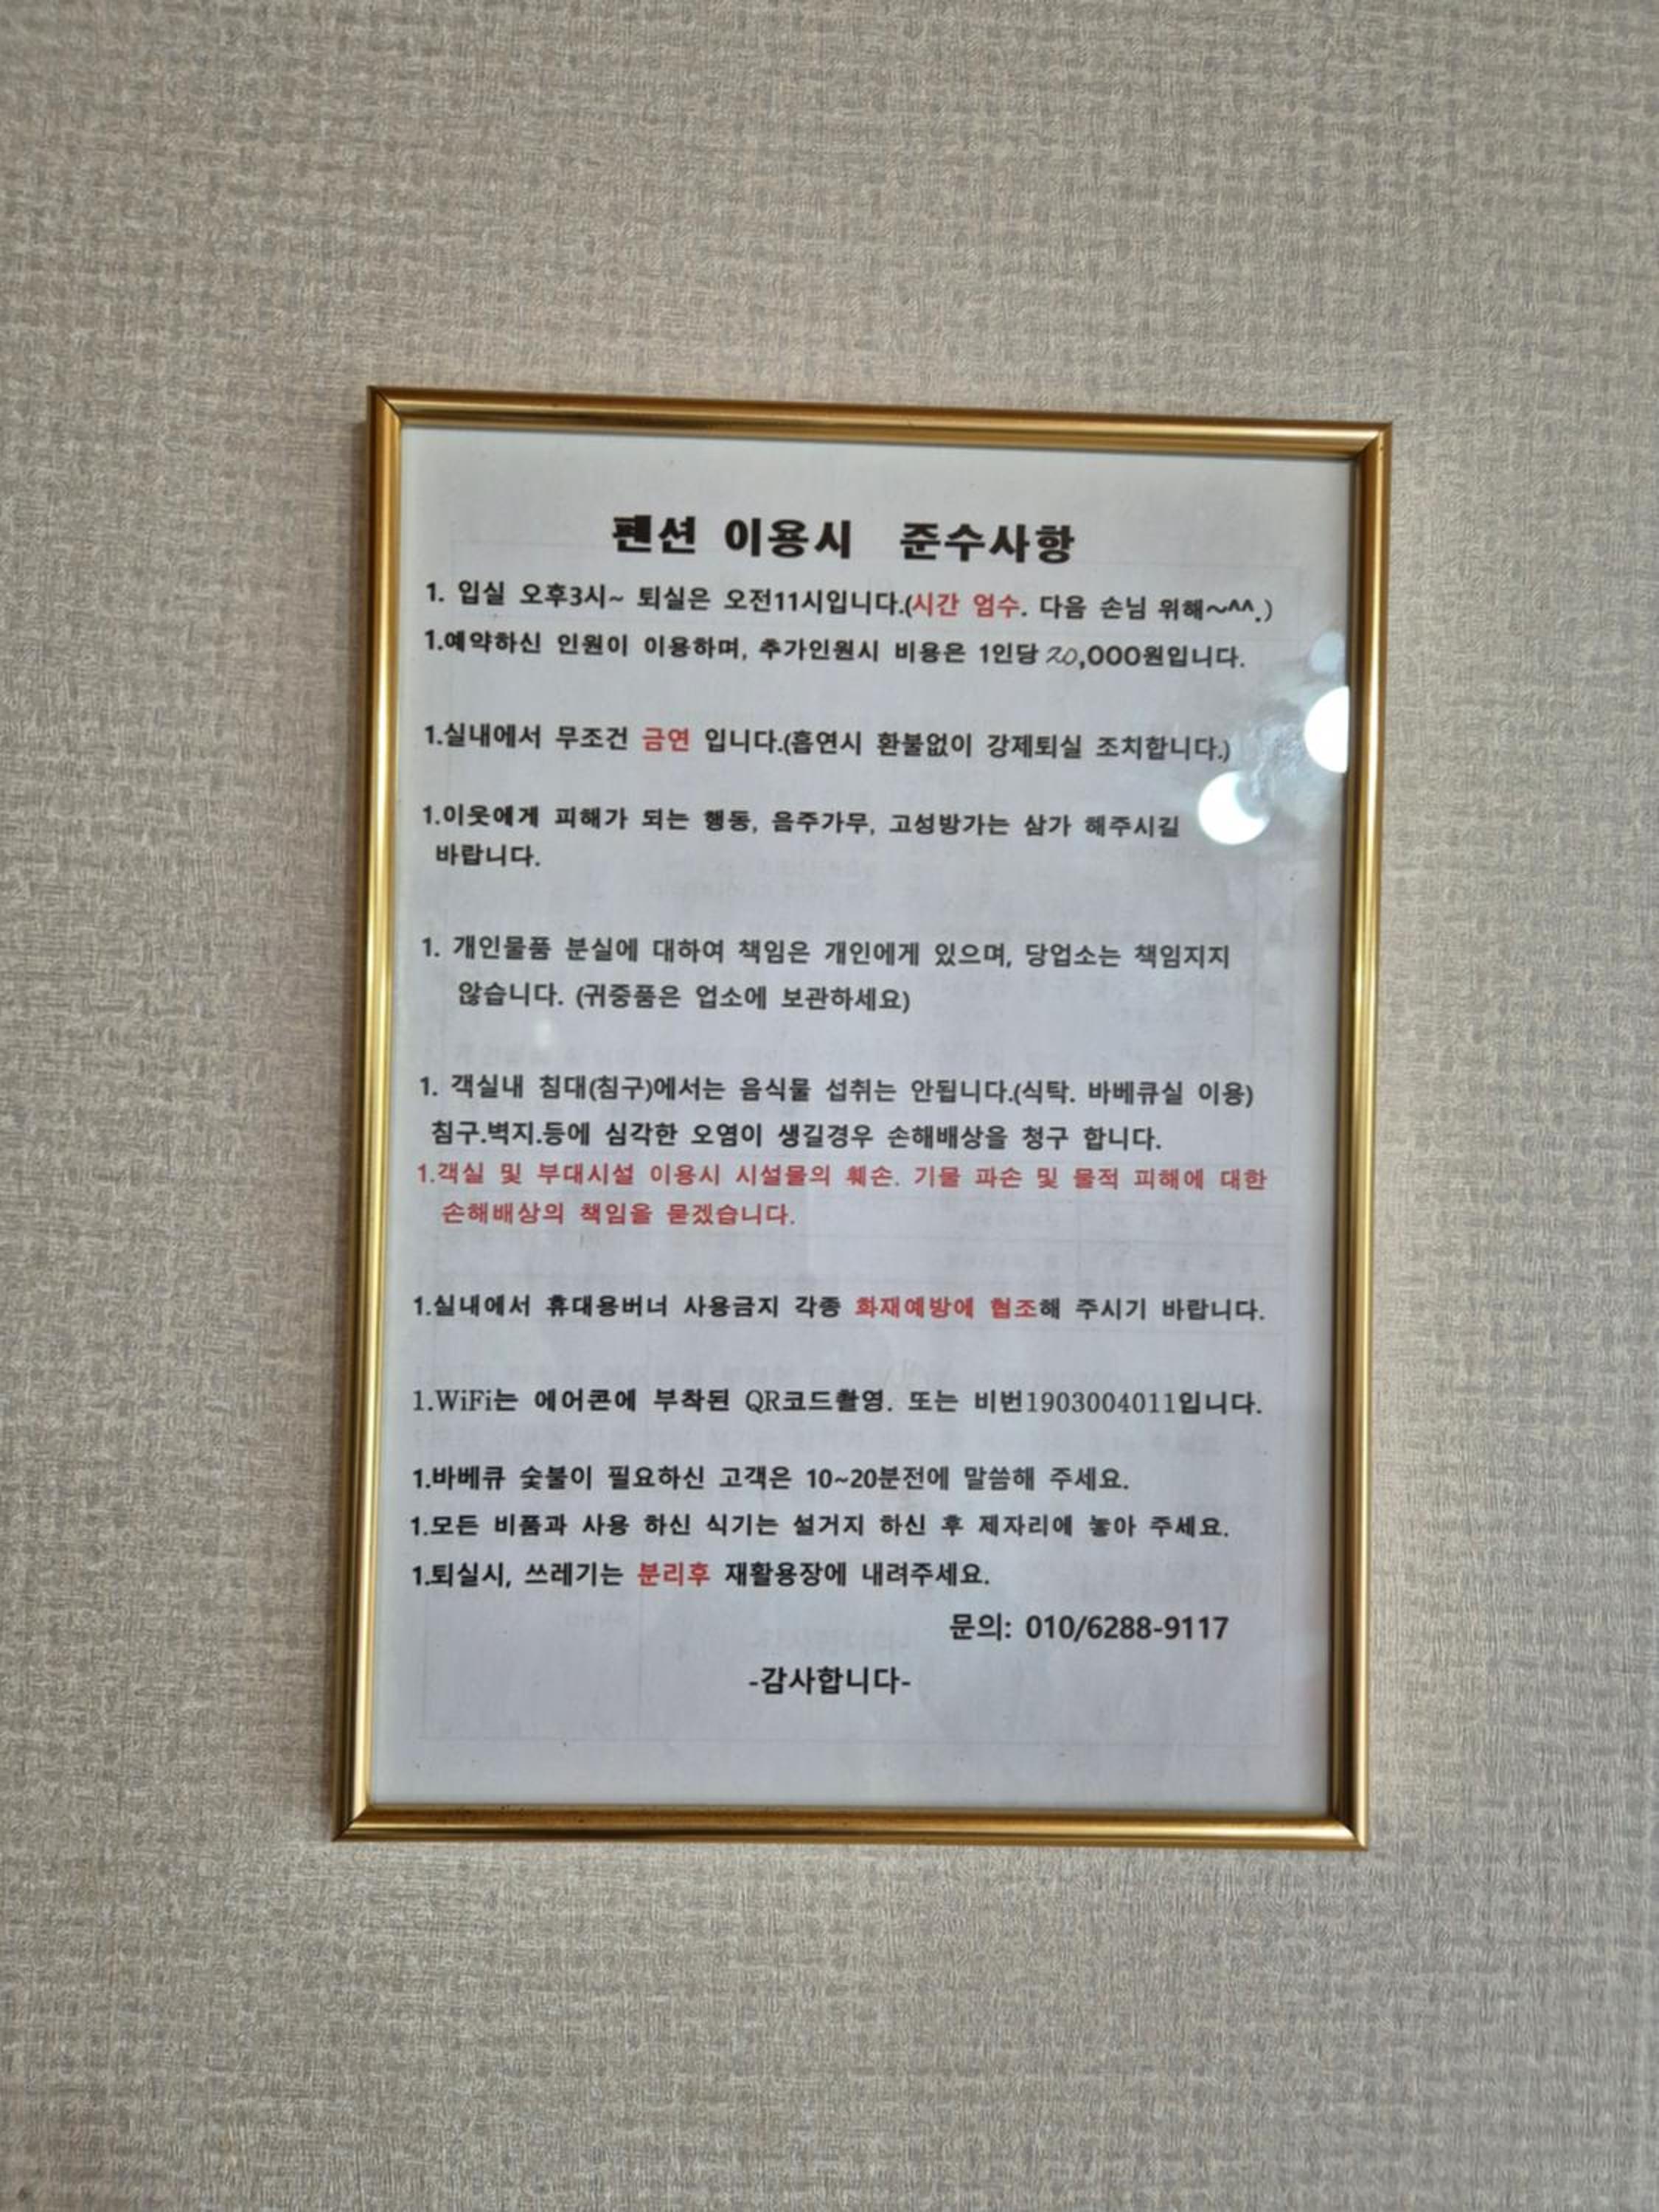 펜션 이용시 준수사항
1. 입실 오후3시~ 퇴실은 오전11시입니다.(시간 엄수. 다음 손님 위해~^^.)
1.예약하신 인원이 이용하며, 추가인원시 비용은 1인당 20,000원입니다.
1.실내에서 무조건 금연 입니다.(흡연시 환불없이 강제퇴실 조치합니다.)
1.이웃에게 피해가 되는 행동, 음주가무, 고성방가는 삼가 해주시길
바랍니다.
1. 개인물품 분실에 대하여 책임은 개인에게 있으며, 당업소는 책임지지
않습니다. (귀중품은 업소에 보관하세요)
1. 객실내 침대(침구)에서는 음식물 섭취는 안됩니다.(식탁. 바베큐실 이용)
침구.벽지.등에 심각한 오염이 생길경우 손해배상을 청구 합니다.
1.객실 및 부대시설 이용시 시설물의 훼손. 기물 파손 및 물적 피해에 대한
손해배상의 책임을 묻겠습니다.
1.실내에서 휴대용버너 사용금지 각종 화재예방에 협조해 주시기 바랍니다.
1.WiFi는 에어콘에 부착된 QR코드촬영. 또는 비번1903004011입니다.
1.바베큐 숯불이 필요하신 고객은 10~20분전에 말씀해 주세요.
1.모든 비품과 사용 하신 식기는 설거지 하신 후 제자리에 놓아 주세요.
1.퇴실시, 쓰레기는 분리후 재활용장에 내려주세요.
문의: 010/6288-9117
-감사합니다-